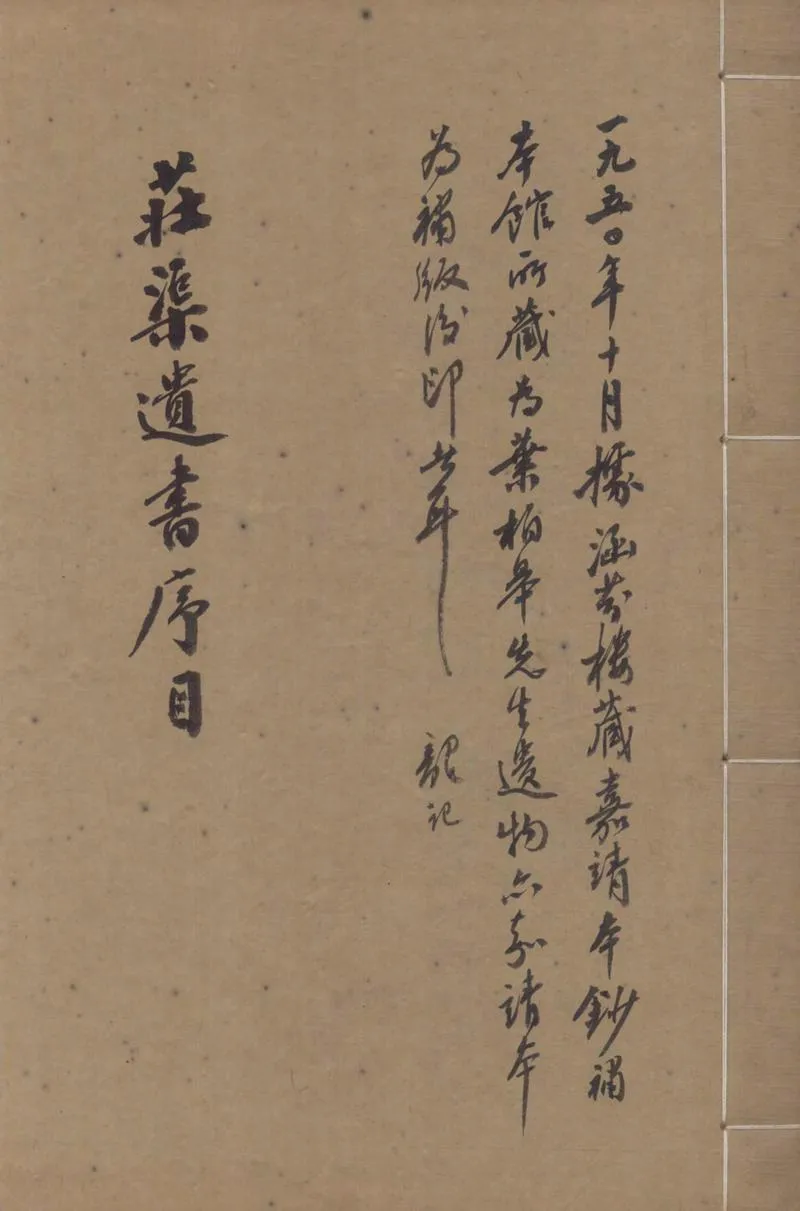 一九五〇年十月據涵芬樓藏嘉靖本鈔補
本館所藏為葉柏皋先生遺物亦嘉靖本
為補版後印者耳 龍記
莊渠遺書序目